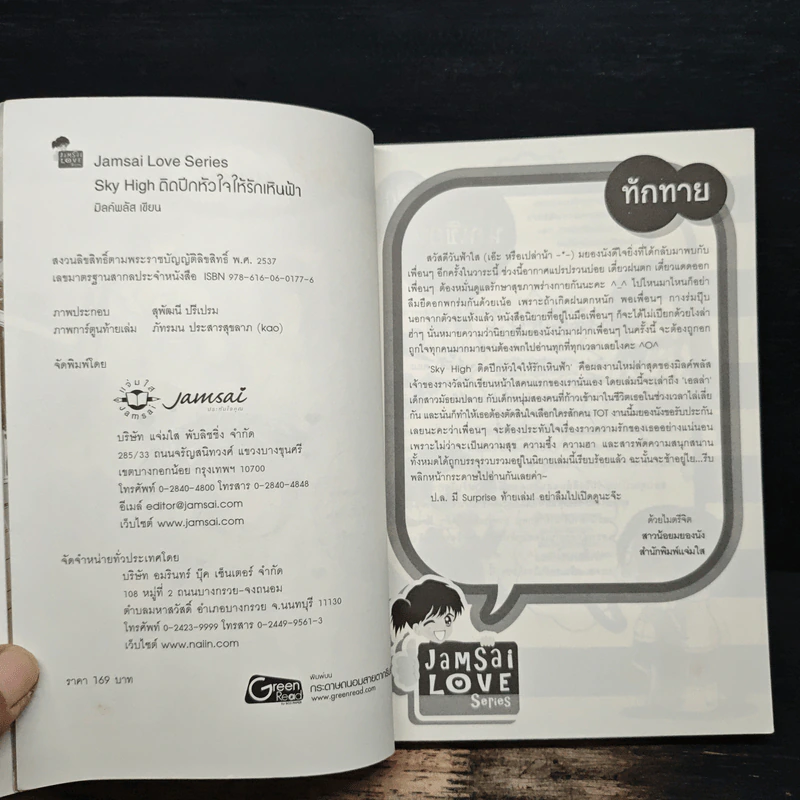 JAMSAI
LOVE
Jamsai Love Series
Sky High ติดปีกหัวใจให้รักเหินฟ้า
มิลค์พลัส เขียน
สงวนลิขสิทธิ์ตามพระราชบัญญัติลิขสิทธิ์ พ.ศ. 2537
เลขมาตรฐานสากลประจำหนังสือ ISBN 978-616-06-0177-6
ภาพประกอบ สุพัฒนี ปรีเปรม
ภาพการ์ตูนท้ายเล่ม ภัทรมน ประสารสุขลาภ (kao)
จัดพิมพ์โดย
แจ่มใส
Jamsai
Jamsai
ประทับใจคุณ
บริษัท แจ่มใส พับลิชชิ่ง จำกัด
285/33 ถนนจรัญสนิทวงศ์ แขวงบางขุนศรี
เขตบางกอกน้อย กรุงเทพฯ 10700
โทรศัพท์ 0-2840-4800 โทรสาร 0-2840-4848
อีเมล์ editor@jamsai.com
เว็บไซต์ www.jamsai.com
จัดจำหน่ายทั่วประเทศโดย
บริษัท อมรินทร์ บุ๊ค เซ็นเตอร์ จำกัด
108 หมู่ที่ 2 ถนนบางกรวย-จงถนอม
ตำบลมหาสวัสดิ์ อำเภอบางกรวย จ.นนทบุรี 11130
โทรศัพท์ 0-2423-9999 โทรสาร 0-2449-9561-3
เว็บไซต์ www.naiin.com
ราคา 169 บาท
Green
Read
พิมพ์บน
กระดาษถนอมสายตากรีน
www.greenread.com
ทักทาย
สวัสดีวันฟ้าใส (เอ๊ะ หรือเปล่าน้า -*-) มยองนังดีใจยิ่งที่ได้กลับมาพบกับ
เพื่อนๆ อีกครั้งในวาระนี้ ช่วงนี้อากาศแปรปรวนบ่อย เดี๋ยวฝนตก เดี๋ยวแดดออก
เพื่อนๆ ต้องหมั่นดูแลรักษาสุขภาพร่างกายกันนะคะ ^_^ ไปไหนมาไหนก็อย่า
ลืมยืดอกพกร่มกันด้วยเน้อ เพราะถ้าเกิดฝนตกหนัก พอเพื่อนๆ กางร่มปุ๊บ
นอกจากตัวจะแห้งแล้ว หนังสือนิยายที่อยู่ในมือเพื่อนๆ ก็จะได้ไม่เปียกด้วยไงล่า
ฮ่าๆ นั่นหมายความว่านิยายที่มยองนังนำมาฝากเพื่อนๆ ในครั้งนี้ จะต้องถูกอก
ถูกใจทุกคนมากมายจนต้องพกไปอ่านทุกที่ทุกเวลาเลยไงคะ ^O^
'Sky High ติดปีกหัวใจให้รักเหินฟ้า' คือผลงานใหม่ล่าสุดของมิลค์พลัส
เจ้าของรางวัลนักเขียนหน้าใสคนแรกของเรานั่นเอง โดยเล่มนี้จะเล่าถึง 'เอลล่า'
เด็กสาวมัธยมปลาย กับเด็กหนุ่มสองคนที่ก้าวเข้ามาในชีวิตเธอในช่วงเวลาไล่เลี่ย
กัน และนั่นก็ทำให้เธอต้องตัดสินใจเลือกใครสักคน TOT งานนี้มยองนังขอรับประกัน
เลยนะคะว่าเพื่อนๆ จะต้องประทับใจเรื่องราวความรักของเธออย่างแน่นอน
เพราะไม่ว่าจะเป็นความสุข ความซึ้ง ความฮา และสารพัดความสนุกสนาน
ทั้งหมดได้ถูกบรรจุรวบรวมอยู่ในนิยายเล่มนี้เรียบร้อยแล้ว ฉะนั้นจะช้าอยู่ไย...รีบ
พลิกหน้ากระดาษไปอ่านกันเลยค่า~
ป.ล. มี Surprise ท้ายเล่ม! อย่าลืมไปเปิดดูนะจ๊ะ
ด้วยไมตรีจิต
สาวน้อยมยองนัง
สำนักพิมพ์แจ่มใส
JAMSAI
LOVE
Series